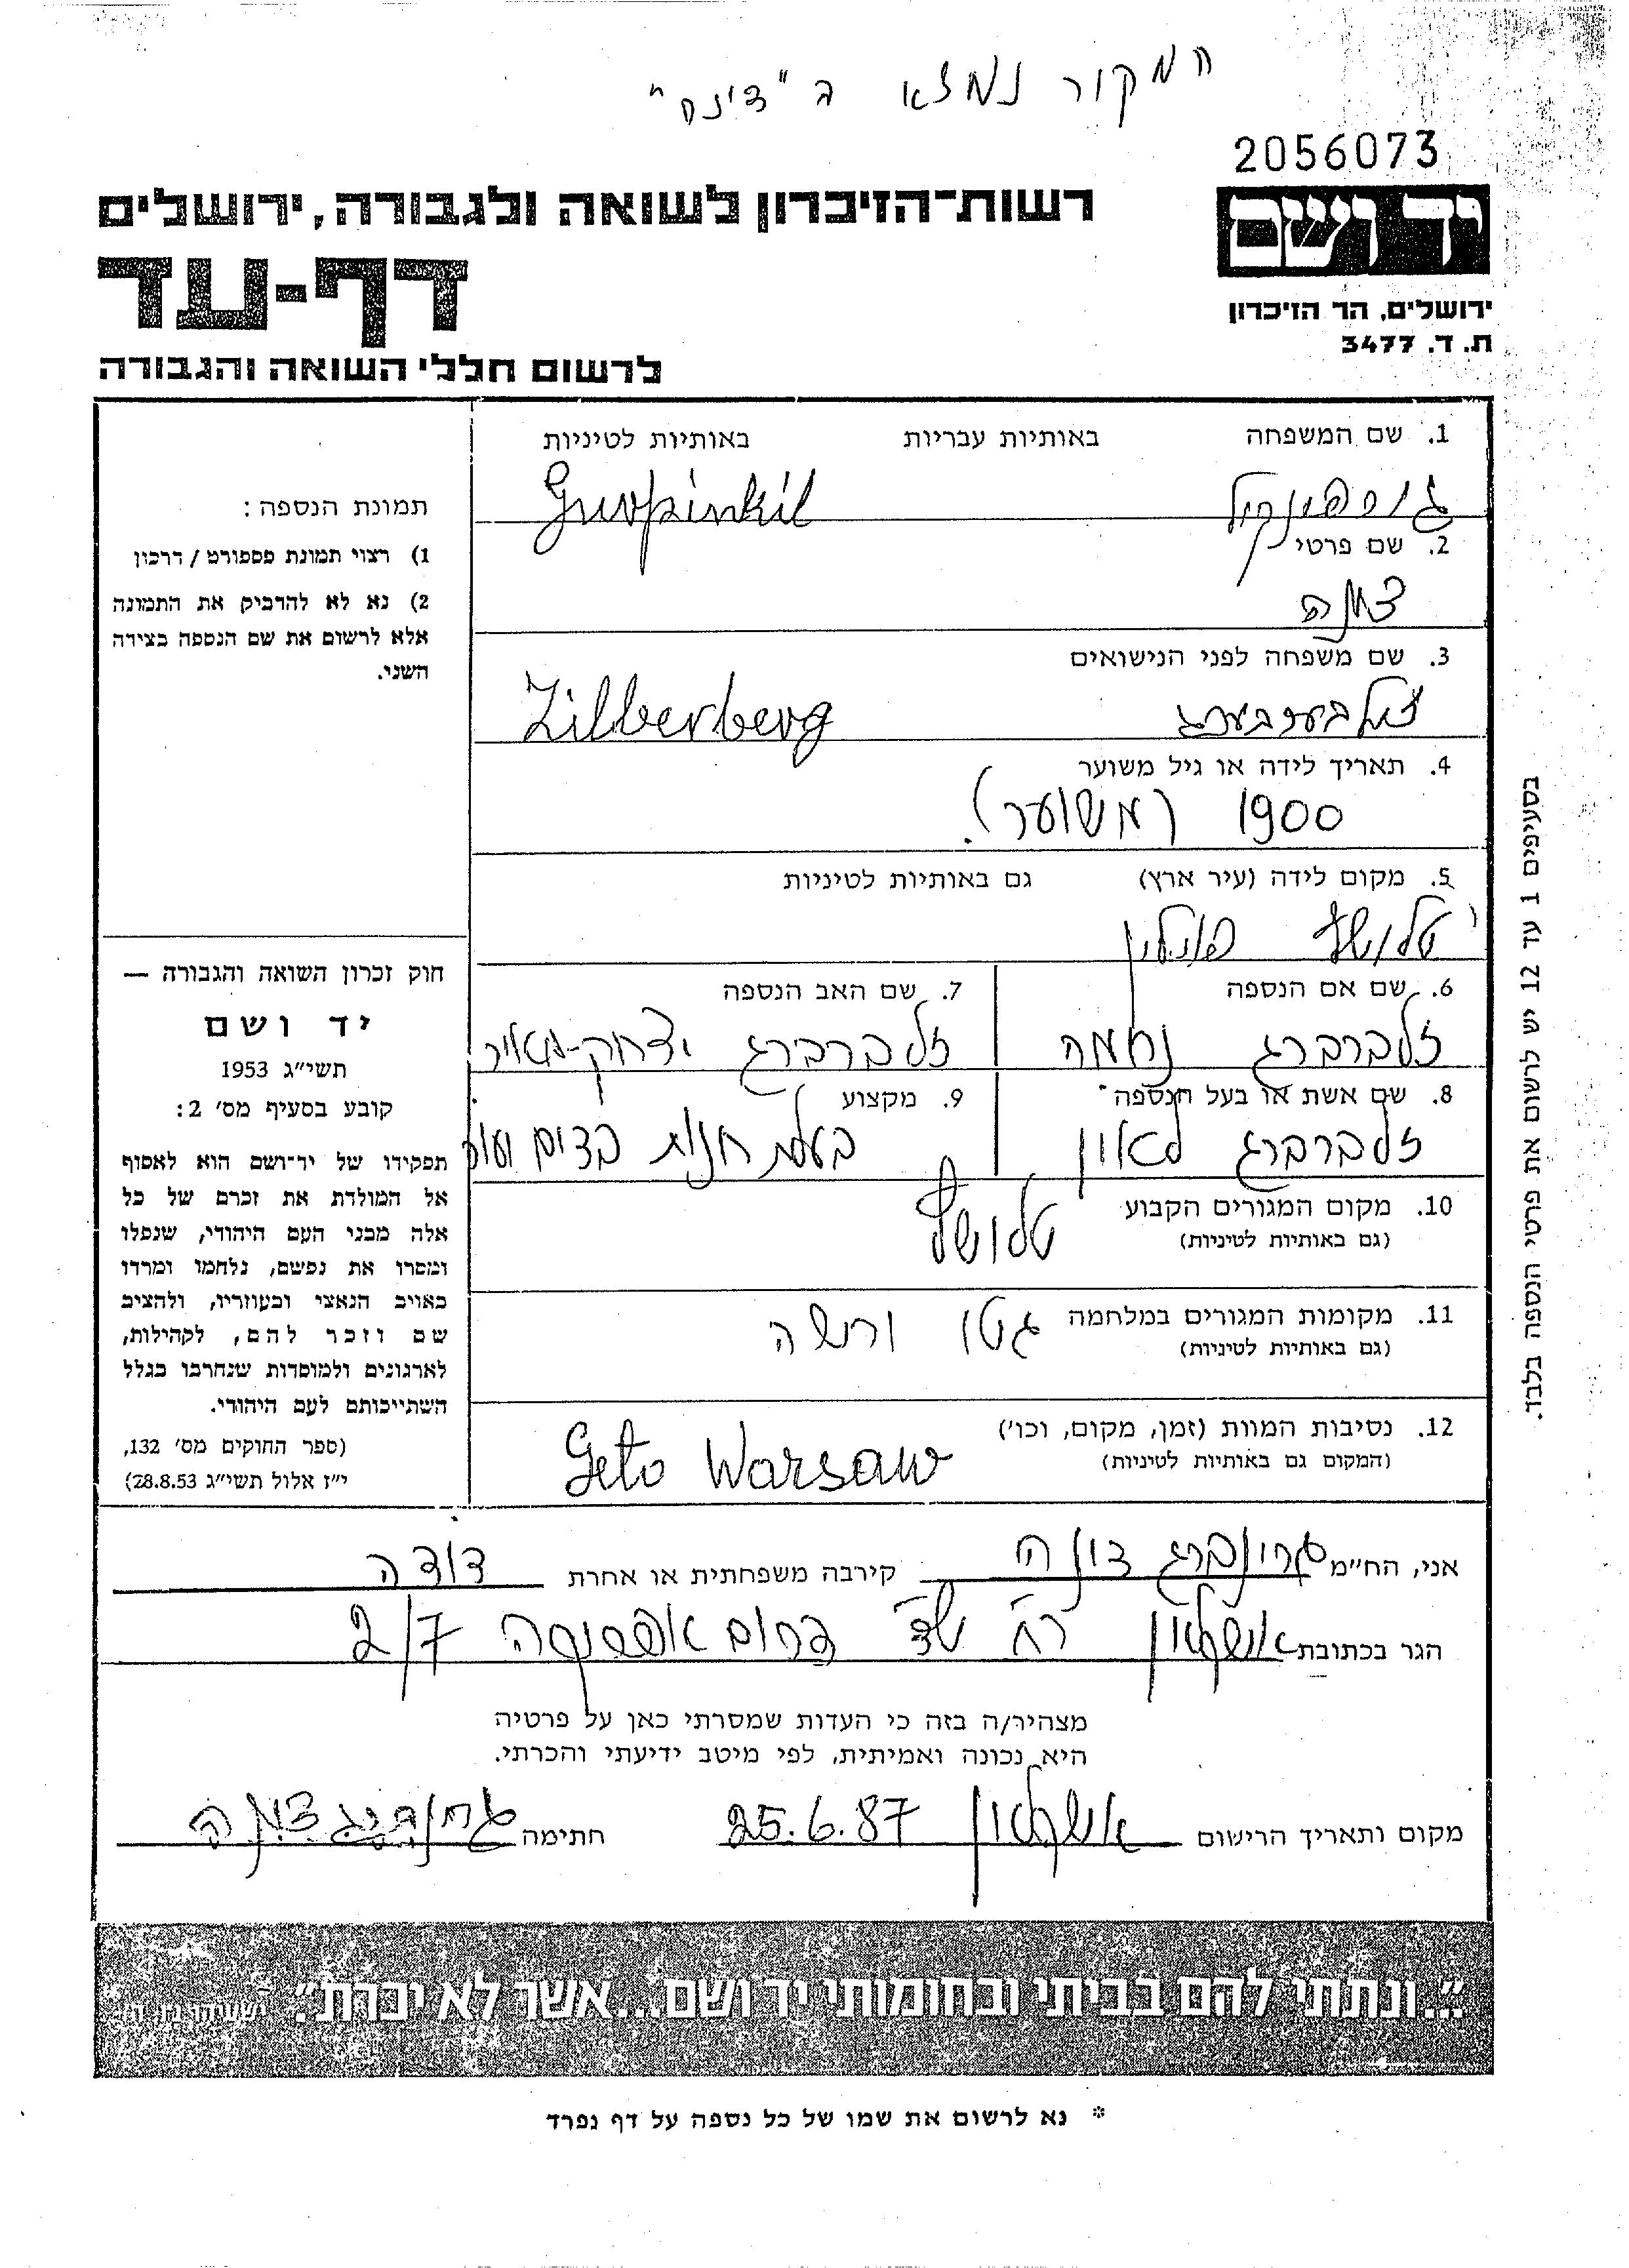 המקור נמצא ב"צינח"
2056073
יד ושם
רשות־הזיכרון לשואה ולגבורה, ירושלים
דף-עד
ירושלים, הר הזיכרון
ת. ד. 3477
לרשום חללי השואה והגבורה
1. שם המשפחה באותיות עבריות באותיות לטיניות
Gruspinkil
2. שם פרטי
3. שם משפחה לפני הנישואים
זילבערבערג Zilberberg
4. תאריך לידה או גיל משוער
1900 (משוער).
5. מקום לידה (עיר ארץ) גם באותיות לטיניות
טלושץ פולין
6. שם אם הנספה
זלברברג נחמה
7. שם האב הנספה
זלברברג יצחק-מאיר
8. שם אשת או בעל הנספה
זלברברג לאון
9. מקצוע
בעלת חנות בדים ועור
10. מקום המגורים הקבוע
(גם באותיות לטיניות)
טלושץ
11. מקומות המגורים במלחמה גטו ורשה
(גם באותיות לטיניות)
12. נסיבות המוות (זמן, מקום, וכו')
(המקום גם באותיות לטיניות)
Geto Warsaw
תמונת הנספה:
1) רצוי תמונת פספורט / דרכון
2) נא לא להדביק את התמונה
אלא לרשום את שם הנספה בצידה
השני.
חוק זכרון השואה והגבורה —
יד ושם
תשי״ג 1953
קובע בסעיף מס׳ 2:
תפקידו של יד־ושם הוא לאסוף
אל המולדת את זכרם של כל
אלה מבני העם היהודי, שנפלו
ומסרו את נפשם, נלחמו ומרדו
באויב הנאצי ובעוזריו, ולהציב
שם וזכר להם, לקהילות,
לארגונים ולמוסדות שנחרבו בגלל
השתייכותם לעם היהודי.
(ספר החוקים מס׳ 132,
י״ז אלול תשי״ג 28.8.53)
בסעיפים 1 עד 12 יש לרשום את פרטי הנספה בלבד.
אני, הח״מ גרונברג צונה קירבה משפחתית או אחרת דודה
הגר בכתובת אשקלון רח' שד' דרום אפריקה 2/7
מצהיר/ה בזה כי העדות שמסרתי כאן על פרטיה
היא נכונה ואמיתית, לפי מיטב ידיעתי והכרתי.
מקום ותאריך הרישום אשקלון 25.6.87 חתימה גרונברג צונה
"...ונתתי להם בביתי ובחומותי יד ושם...אשר לא יכרת". ישעיהו נו, ה'
* נא לרשום את שמו של כל נספה על דף נפרד